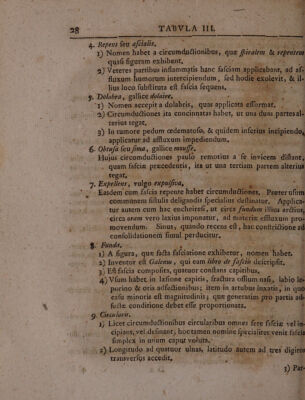 28 TABVLA III.
4. Repens seu ascialis.
1) Nomen habet a circumductionibus, quæ spiralem & repentem
quasi figuram exhibent.
2) Veteres partibus inflammatis hanc fasciam applicabant, ad af-
fluxum humorum intercipiendum, sed hodie exolevit, & il-
lius loco substituta est fascia sequens.
5. Dolabra, gallice doloire.
1) Nomen accepit a dolabris, quas applicata efformat.
2) Circumductiones ita concinnatas habet, ut una duas partes al-
terius tegat.
3) In tumore pedum œdematoso, & quidem inferius incipiendo,
applicatur ad affluxum impediendum.
6. Obtusa seu sima, gallice mousse.
Hujus circumductiones paulo remotius a se invicem distant,
quam fasciæ præcedentis, ita ut una tertiam partem alterius
tegat.
7. Expellens, vulgo expulsiva,
Easdem cum fascia repente habet circumductiones. Præter usum
communem fistulis deligandis specialius destinatur. Applica-
tur autem cum hac encheiresi, ut circa fundum illius arctius,
circa oram vero laxius imponatur, ad materiæ effluxum pro-
movendum. Sinus, quando recens est, hac constrictione ad
consolidationem simul perducitur.
8. Funda.
1) A figura, quæ facta fasciatione exhibetur, nomen habet.
2) Inventor est Galenus, qui eam libro de fasciis descripsit.
3) Est fascia composita, quatuor constans capitibus.
4) Usum habet in læsione capitis, fractura ossium nasi, labio le-
porino & oris adfectionibus; item in artubus luxatis, in quo
casu minoris est magnitudinis, quæ generatim pro partis ad-
fectæ conditione debet esse proportionata.
9. Circularis.
1) Licet circumductionibus circularibus omnes fere fasciæ vel in-
cipiant, vel desinant, hoc tamen nomine specialiter venit fascia
simplex in unum caput voluta.
2) Longitudo ad quatuor ulnas, latitudo autem ad tres digitos
transversos accedit.
3) Par-